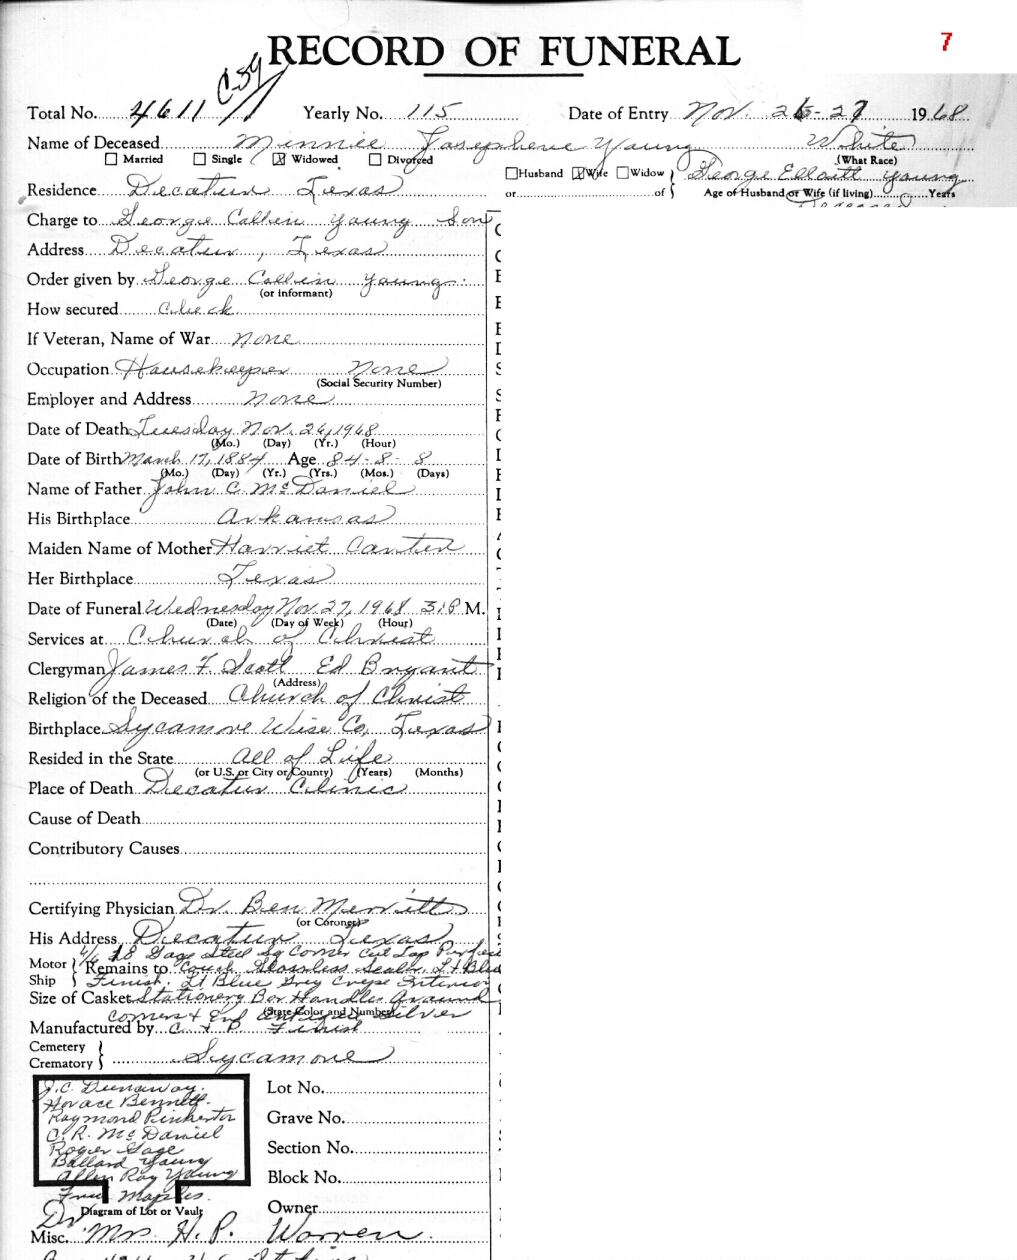 7
RECORD OF FUNERAL
C-59
Total No. 4611 Yearly No. 115 Date of Entry Nov. 26-27 1968
Name of Deceased Minnie Josephene Young White
Married Single Widowed Divorced (What Race)
Husband Wife Widow George Elliott Young
Residence Decatur Texas or of Age of Husband or Wife (if living) Years
Charge to George Collin Young Son
Address Decatur, Texas
Order given by George Collin Young
(or informant)
How secured Check
If Veteran, Name of War None
Occupation Housekeeper None
(Social Security Number)
Employer and Address None
Date of Death Tuesday Nov. 26, 1968
(Mo.) (Day) (Yr.) (Hour)
Date of Birth March 17, 1884 Age 84-8-8
(Mo.) (Day) (Yr.) (Yrs.) (Mos.) (Days)
Name of Father John C. McDaniel
His Birthplace Arkansas
Maiden Name of Mother Harriet Carter
Her Birthplace Texas
Date of Funeral Wednesday Nov. 27, 1968 3:P.M.
(Date) (Day of Week) (Hour)
Services at Church of Christ
Clergyman James F. Scott Ed Bryant
(Address)
Religion of the Deceased Church of Christ
Birthplace Sycamore Wise Co, Texas
Resided in the State All of Life
(or U.S. or City or County) (Years) (Months)
Place of Death Decatur Clinic
Cause of Death
Contributory Causes
Certifying Physician Dr. Ben Merritt
(or Coroner)
His Address Decatur Texas
6/6 18 Gage Steel Sq Corner Cut Top
Motor Ship Remains to Sealer Lt Blue
Finish. Lt Blue Grey Crepe Interior
Size of Casket Stationery Bar Handles Around
(State Color and Number)
corners & End Antique Silver
Manufactured by C. & B. Finish
Cemetery
Crematory Sycamore
J.C. Dunaway.
Horace Bennett.
Raymond Pinkerton
O.R. McDaniel
Roger Gage
Ballard Young
Allen Ray Young
Fred Maples.
Lot No.
Grave No.
Section No.
Block No.
Owner
Diagram of Lot or Vault
Dr
Misc. Mrs H. P. Worren